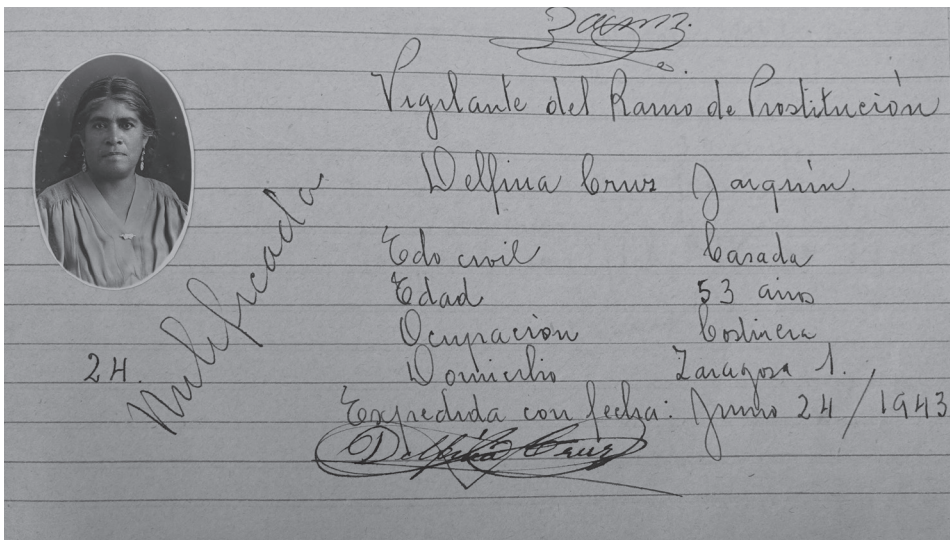 Vigilante del Ramo de Prostitución
Delfina Cruz Jarquín.
Edo civil Casada
Edad 53 años
Ocupación Costurera
Domicilio Zaragosa 1.
24.
Expedida con fecha: Junio 24/1943
Delfina Cruz